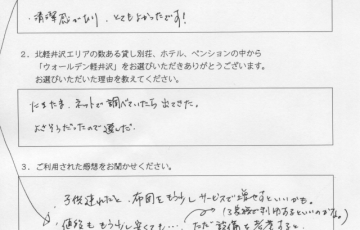 ・清潔感があり、とてもよかったです!
2. 北軽井沢エリアの数ある貸し別荘、ホテル、ペンションの中から
「ウォールデン軽井沢」をお選びいただきありがとうございます。
お選びいただいた理由を教えてください。
たまたま、ネットで調べていたら出てきた。
よさそうだったので選んだ。
3. ご利用された感想をお聞かせください。
・子供連れだと、布団をもう少しサービスで増やすといいかも。
・値段ももう少し安くても…、ただ設備を考慮すると